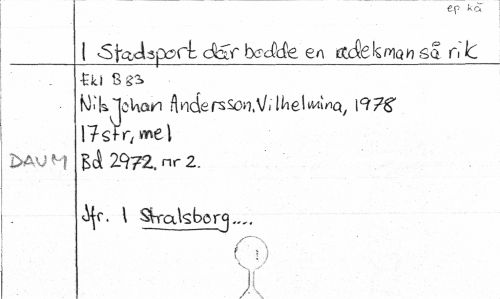 ep kä
I Stadsport där bodde en adelsman så rik
Ek1 B 83
Nils Johan Andersson, Vilhelmina, 1978
17 str, mel
DAUM Bd 2972, nr 2.
Jfr. I Stralsborg....